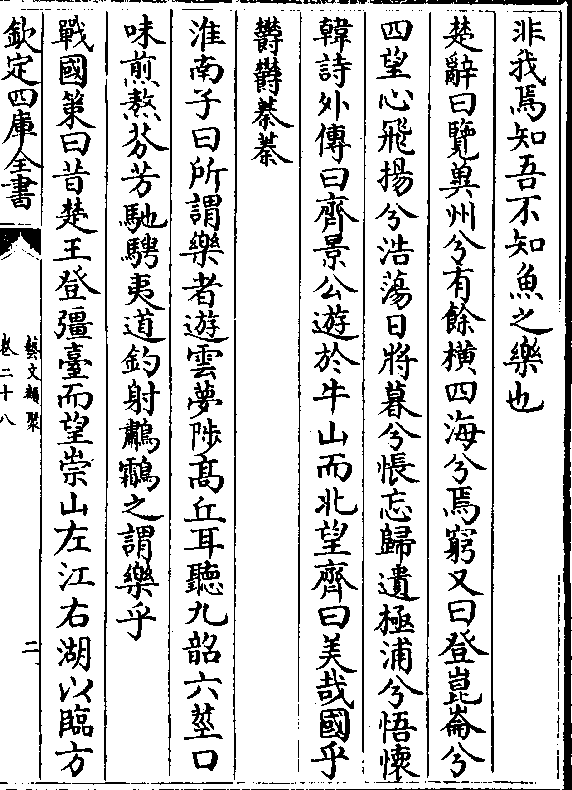 非我焉知吾不知魚之樂也
楚辭曰覽兾州兮有餘橫四海兮焉窮又曰登崑崙兮
四望心飛揚兮浩蕩日將暮兮悵忘歸遺極浦兮悟懷
韓詩外傳曰齊景公遊於牛山而北望齊曰美哉國乎
欝欝蓁蓁
淮南子曰所謂樂者遊雲夢陟髙丘耳聽九韶六莖口
味煎熬芬芳馳騁夷道釣射鷫鸘之謂樂乎
戰國策曰昔楚王登彊臺而望崇山左江右湖以臨方
欽定四庫全書
藝文類聚
卷二十八
二